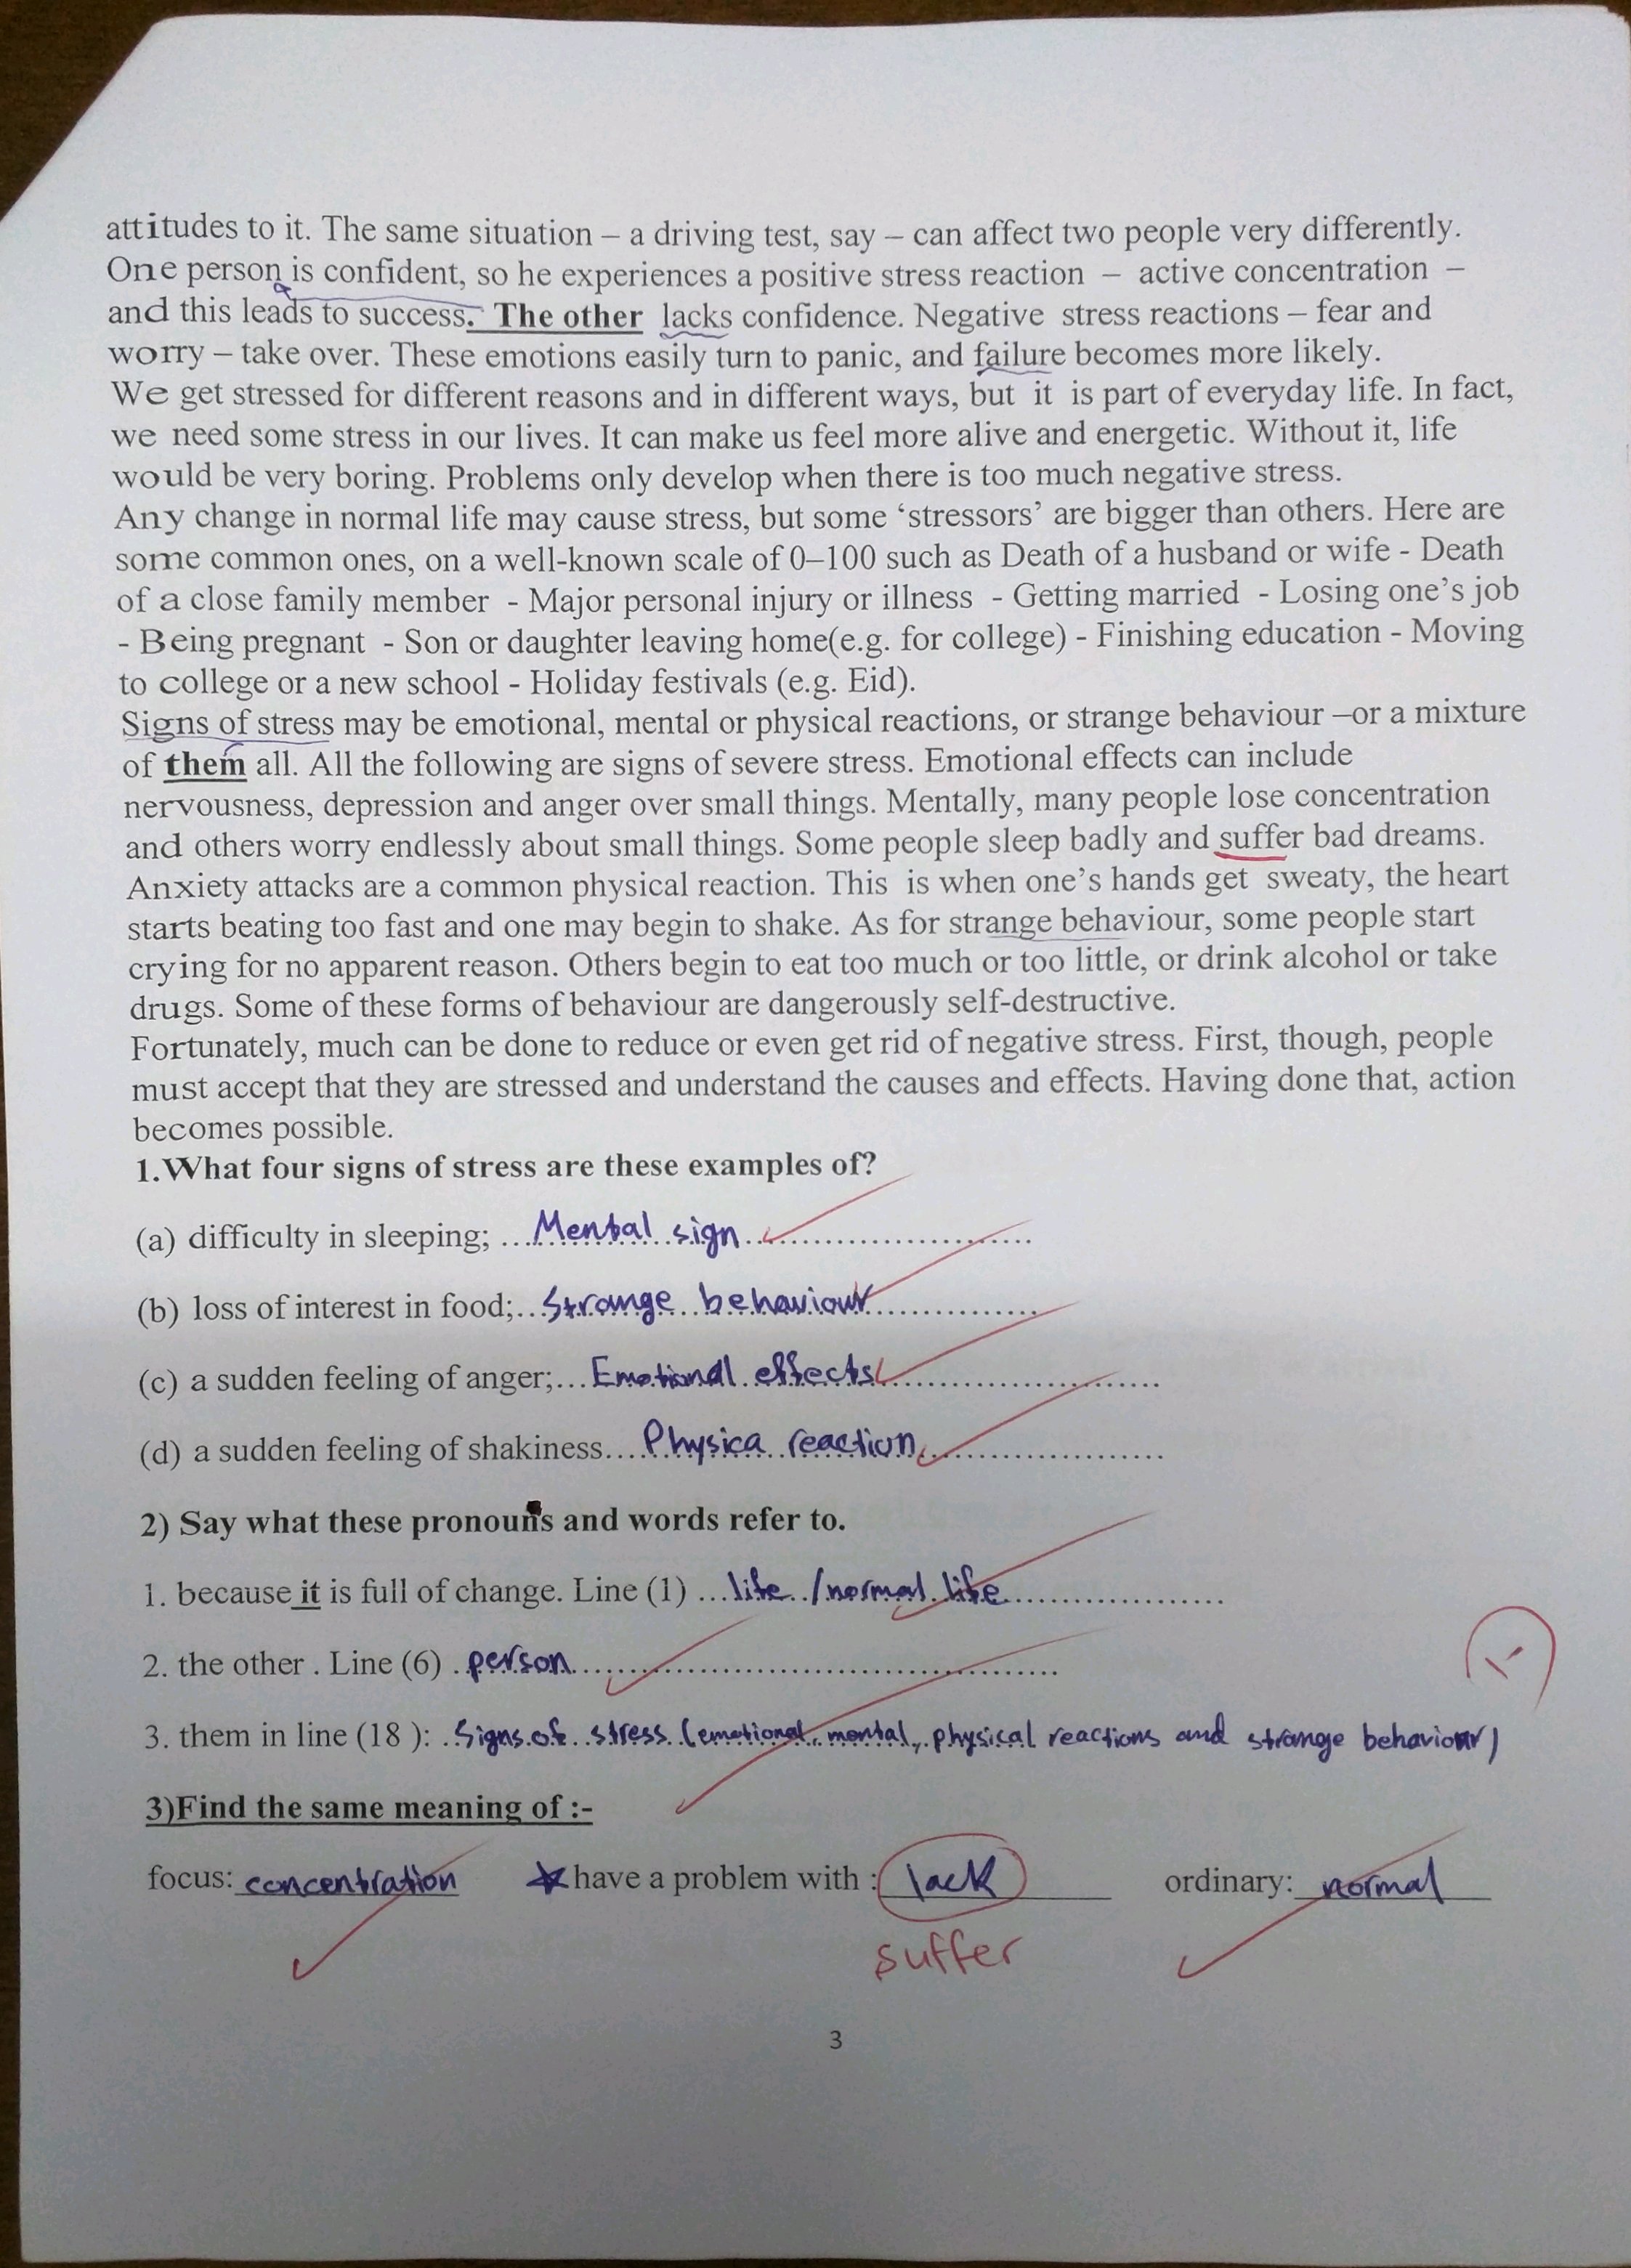 attitudes to it. The same situation – a driving test, say – can affect two people very differently.
One person is confident, so he experiences a positive stress reaction – active concentration –
and this leads to success. The other lacks confidence. Negative stress reactions – fear and
worry – take over. These emotions easily turn to panic, and failure becomes more likely.
We get stressed for different reasons and in different ways, but it is part of everyday life. In fact,
we need some stress in our lives. It can make us feel more alive and energetic. Without it, life
would be very boring. Problems only develop when there is too much negative stress.
Any change in normal life may cause stress, but some ‘stressors’ are bigger than others. Here are
some common ones, on a well-known scale of 0–100 such as Death of a husband or wife - Death
of a close family member - Major personal injury or illness - Getting married - Losing one’s job
- Being pregnant - Son or daughter leaving home(e.g. for college) - Finishing education - Moving
to college or a new school - Holiday festivals (e.g. Eid).
Signs of stress may be emotional, mental or physical reactions, or strange behaviour –or a mixture
of them all. All the following are signs of severe stress. Emotional effects can include
nervousness, depression and anger over small things. Mentally, many people lose concentration
and others worry endlessly about small things. Some people sleep badly and suffer bad dreams.
Anxiety attacks are a common physical reaction. This is when one’s hands get sweaty, the heart
starts beating too fast and one may begin to shake. As for strange behaviour, some people start
crying for no apparent reason. Others begin to eat too much or too little, or drink alcohol or take
drugs. Some of these forms of behaviour are dangerously self-destructive.
Fortunately, much can be done to reduce or even get rid of negative stress. First, though, people
must accept that they are stressed and understand the causes and effects. Having done that, action
becomes possible.
1.What four signs of stress are these examples of?
(a) difficulty in sleeping; ...Mental sign..........
(b) loss of interest in food;...Strange behaviour..........
(c) a sudden feeling of anger;...Emotional effects..........
(d) a sudden feeling of shakiness....Physica reaction..........
2) Say what these pronouns and words refer to.
1. because it is full of change. Line (1) ...life /normal life..........
2. the other . Line (6) ..person..........
3. them in line (18 ): ..Signs of stress (emotional, mental, physical reactions and strange behaviour)
3)Find the same meaning of :-
focus: concentration ★ have a problem with : lack ordinary: normal
suffer
3